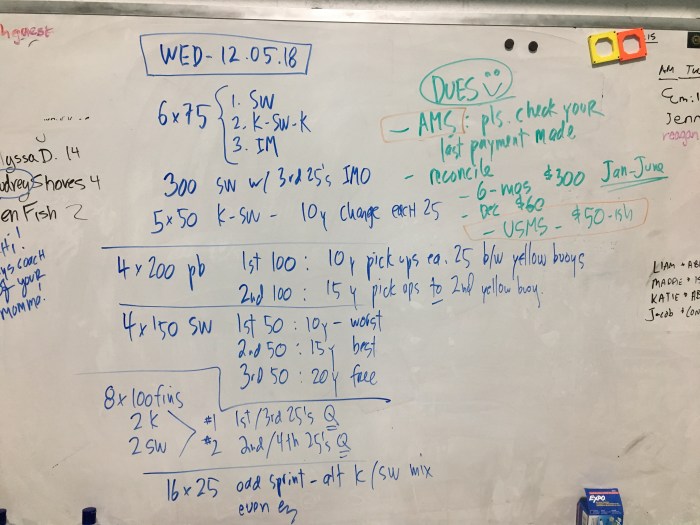 WED - 12.05.18
6x75 { 1. SW
2. K-SW-K
3. IM
300 SW w/ 3rd 25's IMO
5x50 K-SW - 10y change each 25
4x200 pb 1st 100: 10y pick ups ea. 25 b/w yellow buoys
2nd 100: 15y pick ups to 2nd yellow buoy.
4x150 SW 1st 50: 10y - worst
2nd 50: 15y best
3rd 50: 20y free
8x100 fins
2 K #1 1st/3rd 25's Q
2 SW #2 2nd/4th 25's Q
16x25 odd sprint - alt K/SW mix
even ez
DUES
- AMS: pls. check your
last payment made
- reconcile
- 6-mos $300 Jan-June
- Dec $60
- USMS - $50-ish
lyssa D. 14
udrey Shoves 4
en Fish 2
Hi!
coach
of your
momma!
is
AM Tu
Emil
Jenn
reagan
LIAM + AB
MADDIE +
KATIE + AB
Jacob + CON
EXPO